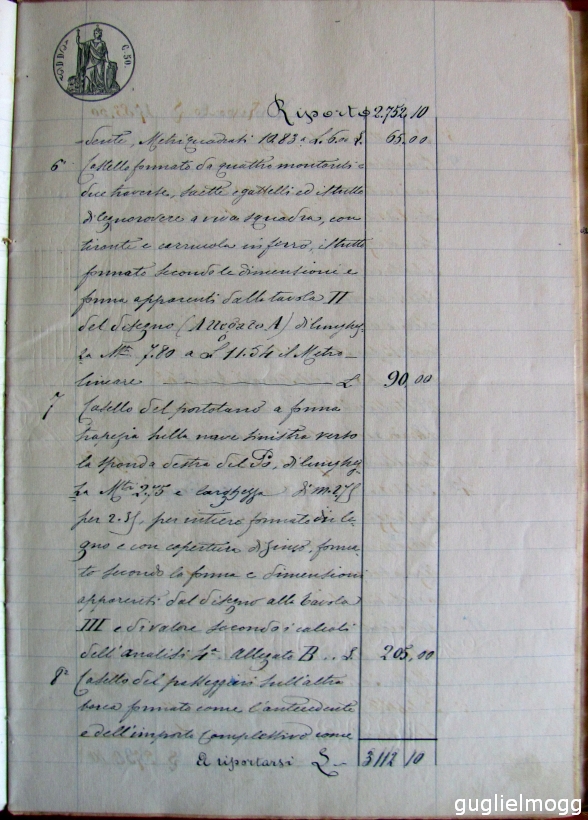 C. 50
Riporto 2.752,10
dente, Metri quadrati 10.83 a L. 6.00 L. 65.00
6° Castello formato da quattro montanti
due traverse, saette e gattelli ed il tutto
di legno rovere a viva squadra, con
tirante e carrucola in ferro, il tutto
formato secondo le dimensioni e
forma apparenti dalla tavola II
del disegno (Allegato A) di lunghez-
za Mtri 7.80 a L. 11.54 il Metro
lineare L 90,00
7 Casello del portolano a forma
trapezia sulla nave sinistra verso
la sponda destra del Po, di lunghez-
za Mtri 2.75 e larghezza di m. 2.75
per 2.35, per intiero formato di le-
gno e con copertura di zinco, forma-
to secondo la forma e dimensioni
apparenti dal disegno alla tavola
III e di valore secondo i calcoli
dell'analisi 4a Allegato B .. L 205,00
8° Casello dei passeggieri sull'altra
barca formato come l'antecedente
e dell'importo complessivo come
A riportarsi L 3112 10
guglielmogg